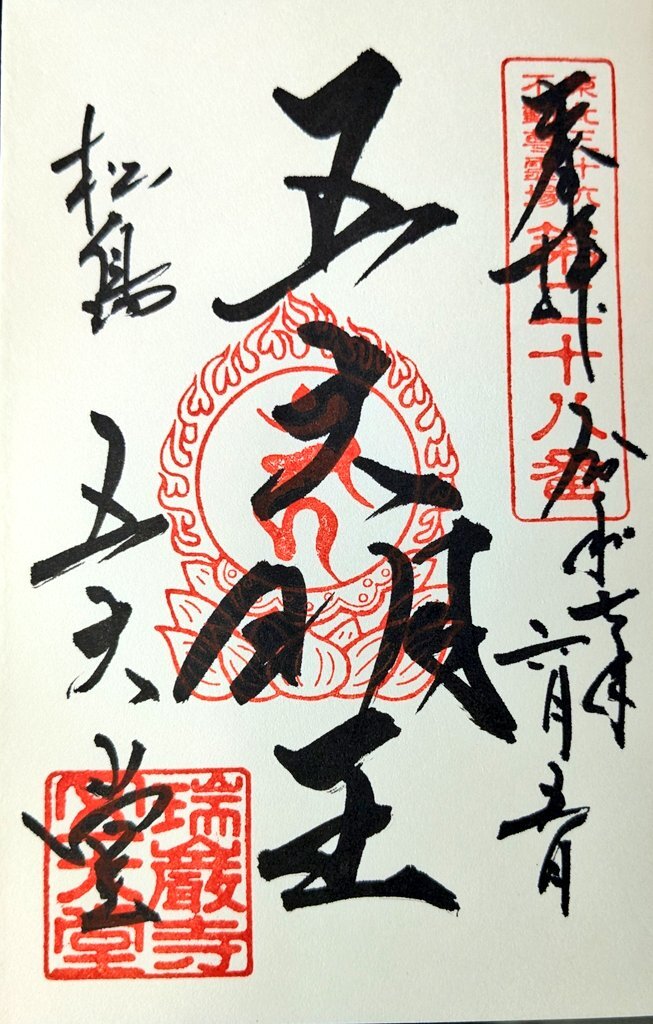 奉拝
令和七年
六月五日
東北三十六
不動尊霊場
第二十八番
五大明王
松島
五大堂
瑞巌寺
五大堂